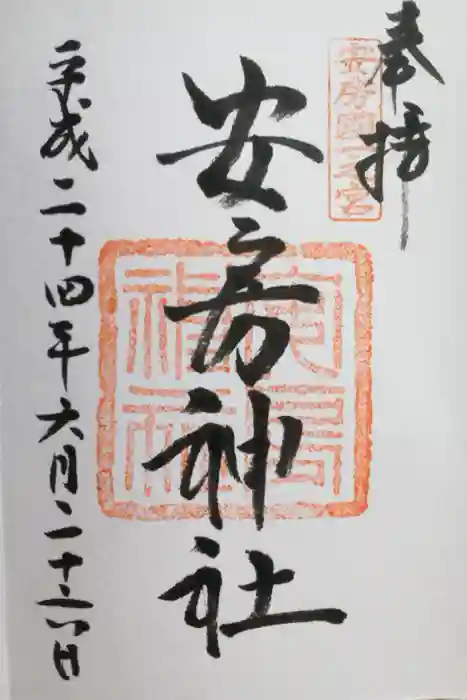 奉拝
安房國一之宮
安房神社
安房神社
平成二十四年六月二十三日